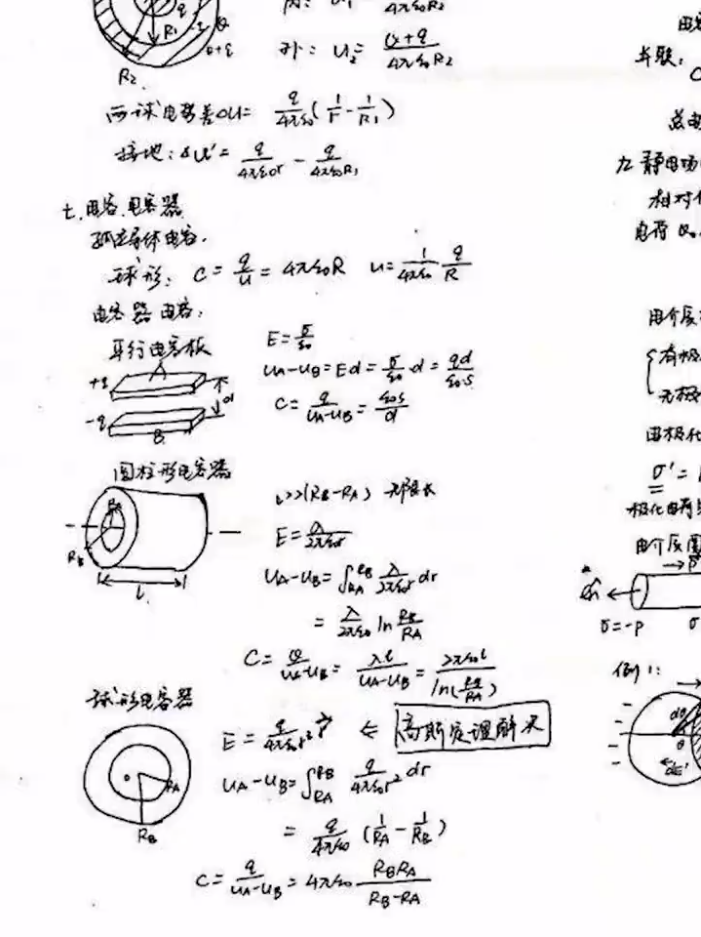 R₁ -q Q
Q+q
R₂
4πε₀R₂
外: U₂ = (Q+q)/(4πε₀R₂)
两球电势差ΔU = q/(4πε₀) (1/r - 1/R₁)
接地: ΔU' = q/(4πε₀r) - q/(4πε₀R₁)
七、电容、电容器
孤立导体电容.
球形: C = q/u = 4πε₀R u = 1/(4πε₀) q/R
电容器电容:
平行电容板
+q A d
-q B
E = σ/ε₀
U_A-U_B = Ed = σ/ε₀·d = qd/(ε₀·S)
C = q/(U_A-U_B) = ε₀S/d
圆柱形电容器
R_A
R_B
L
L>>(R_B-R_A) 无限长
E = λ/(2πε₀r)
U_A-U_B = ∫_{R_A}^{R_B} λ/(2πε₀r) dr
= λ/(2πε₀) ln R_B/R_A
C = Q/(U_A-U_B) = λl/(U_A-U_B) = 2πε₀l/ln(R_B/R_A)
球形电容器
R_A
R_B
E = q/(4πε₀r²) r⃗ ⇐ 高斯定理解决
U_A-U_B = ∫_{R_A}^{R_B} q/(4πε₀r²) dr
= q/(4πε₀) (1/R_A - 1/R_B)
C = q/(U_A-U_B) = 4πε₀ R_BR_A/(R_B-R_A)
电容
并联:
C
总电
九 静电场
相对
电荷
电介质
有极
无极
电极化
σ' =
极化电荷
电介质圆
σ=-P σ
例1:
dθ
θ